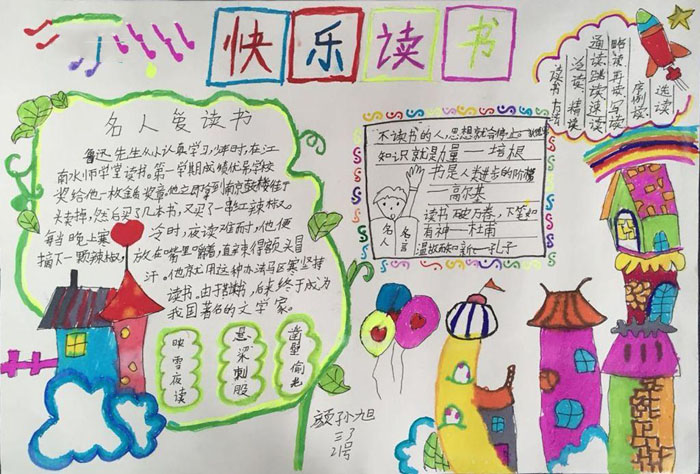 快乐读书
名人爱读书
鲁迅先生从小认真学习,少年时,在江
南水师学堂读书,第一学期成绩优异学校
奖给他一枚金奖章,他立即拿到南京鼓楼街
头卖掉,然后买了几本书,又买了一串红辣椒。
每当晚上寒冷时,夜读难耐,他便
摘下一颗辣椒,放在嘴里嚼着,直辣得额头冒
汗。他就用这种办法驱寒坚持
读书。由于苦读书,后来终于成为
我国著名的文学家。
映雪夜读
悬梁刺股
凿壁偷光
不读书的人,思想就会停止
知识就是力量——培根
书是人类进步的阶梯
——高尔基
读书破万卷,下笔如
有神——杜甫
温故而知新——孔子
名人
名言
读书方法
泛读
精读
通读
跳读
速读
略读
再读
写读
序例读
选读
颜孙旭
三3
21号